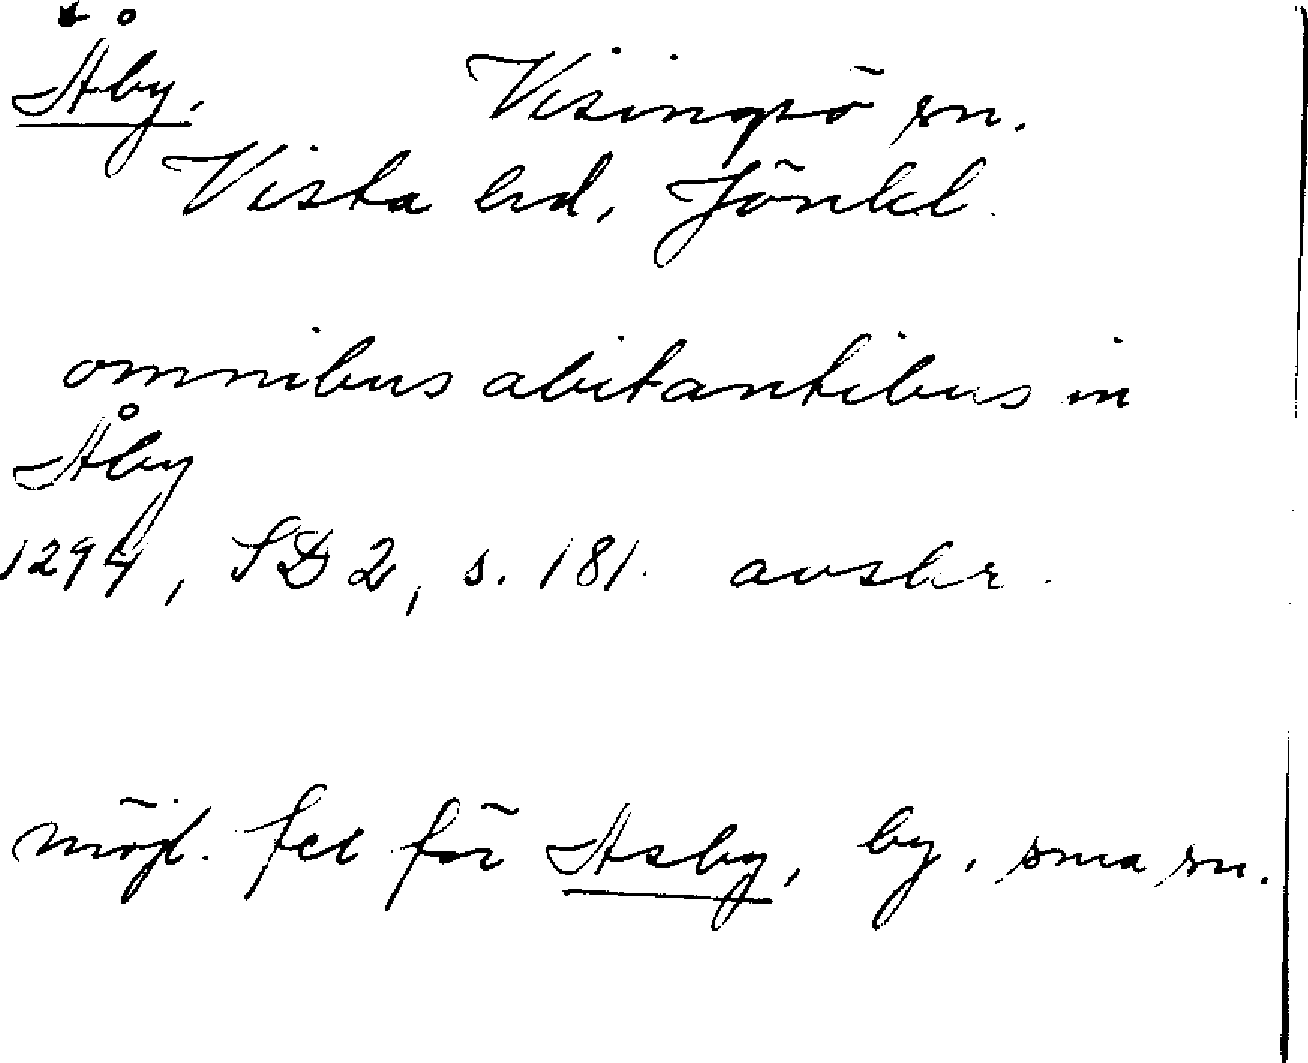 * Åby. Visingsö sn.
Vista hd, Jönkl.
omnibus abitantibus in
Åby
1294, SD 2, s. 181. avskr.
möjl. fel för Asby, by, sma sn.